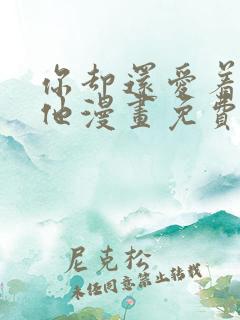 你却還愛着
他漫畫免費
尼克松
未经同意禁止转载